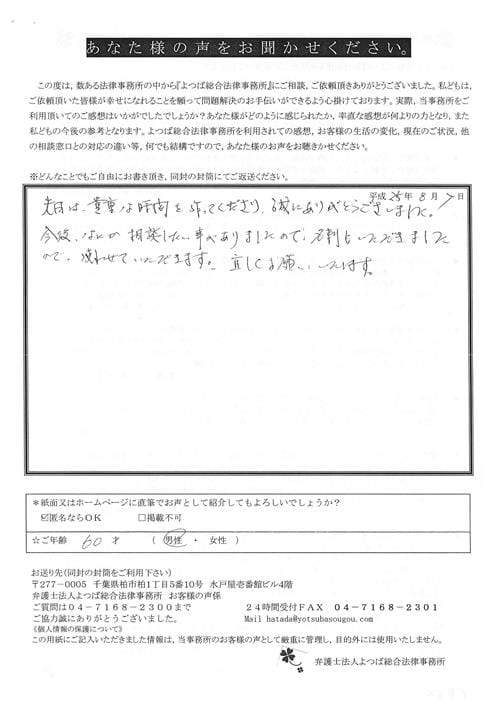 あなた様の声をお聞かせください。
この度は，数ある法律事務所の中から『よつば総合法律事務所』にご相談，ご依頼頂きありがとうございました。私どもは，
ご依頼頂いた皆様が幸せになれることを願って問題解決のお手伝いができるよう心掛けております。実際，当事務所をご
利用頂いてのご感想はいかがでしたでしょうか？あなた様がどのように感じられたか，率直な感想が何よりの力となり，また
私どもの今後の参考となります。よつば総合法律事務所を利用されての感想，お客様の生活の変化，現在のご状況，他
の相談窓口との対応の違い等，何でも結構ですので，あなた様のお声をお聴きかせください。
※どんなことでもご自由にお書き頂き，同封の封筒にてご返送ください。
平成25年8月7日
先日は、貴重な時間を作ってくださり、誠にありがとうございました。
今後、なにか相談したい事がありましたので、名刺をいただきました
ので、使わせていただきます。宜しくお願いいたします。
＊紙面又はホームページに直筆でお声として紹介してもよろしいでしょうか？
☑匿名ならＯＫ □掲載不可
☆ご年齢 60 才 （ 男性 ・ 女性 ）
お送り先（同封の封筒をご利用下さい）
〒277－0005 千葉県柏市柏1丁目5番10号 水戸屋壱番館ビル4階
弁護士法人よつば総合法律事務所 お客様の声係
ご質問は０４－７１６８－２３００まで ２４時間受付ＦＡＸ ０４－７１６８－２３０１
ご協力誠にありがとうございました。 Mail hatada@yotsubasougou.com
《個人情報の保護について》
この用紙にご記入いただきました情報は，当事務所のお客様の声として厳重に管理し，目的外には使用いたしません。
弁護士法人よつば総合法律事務所